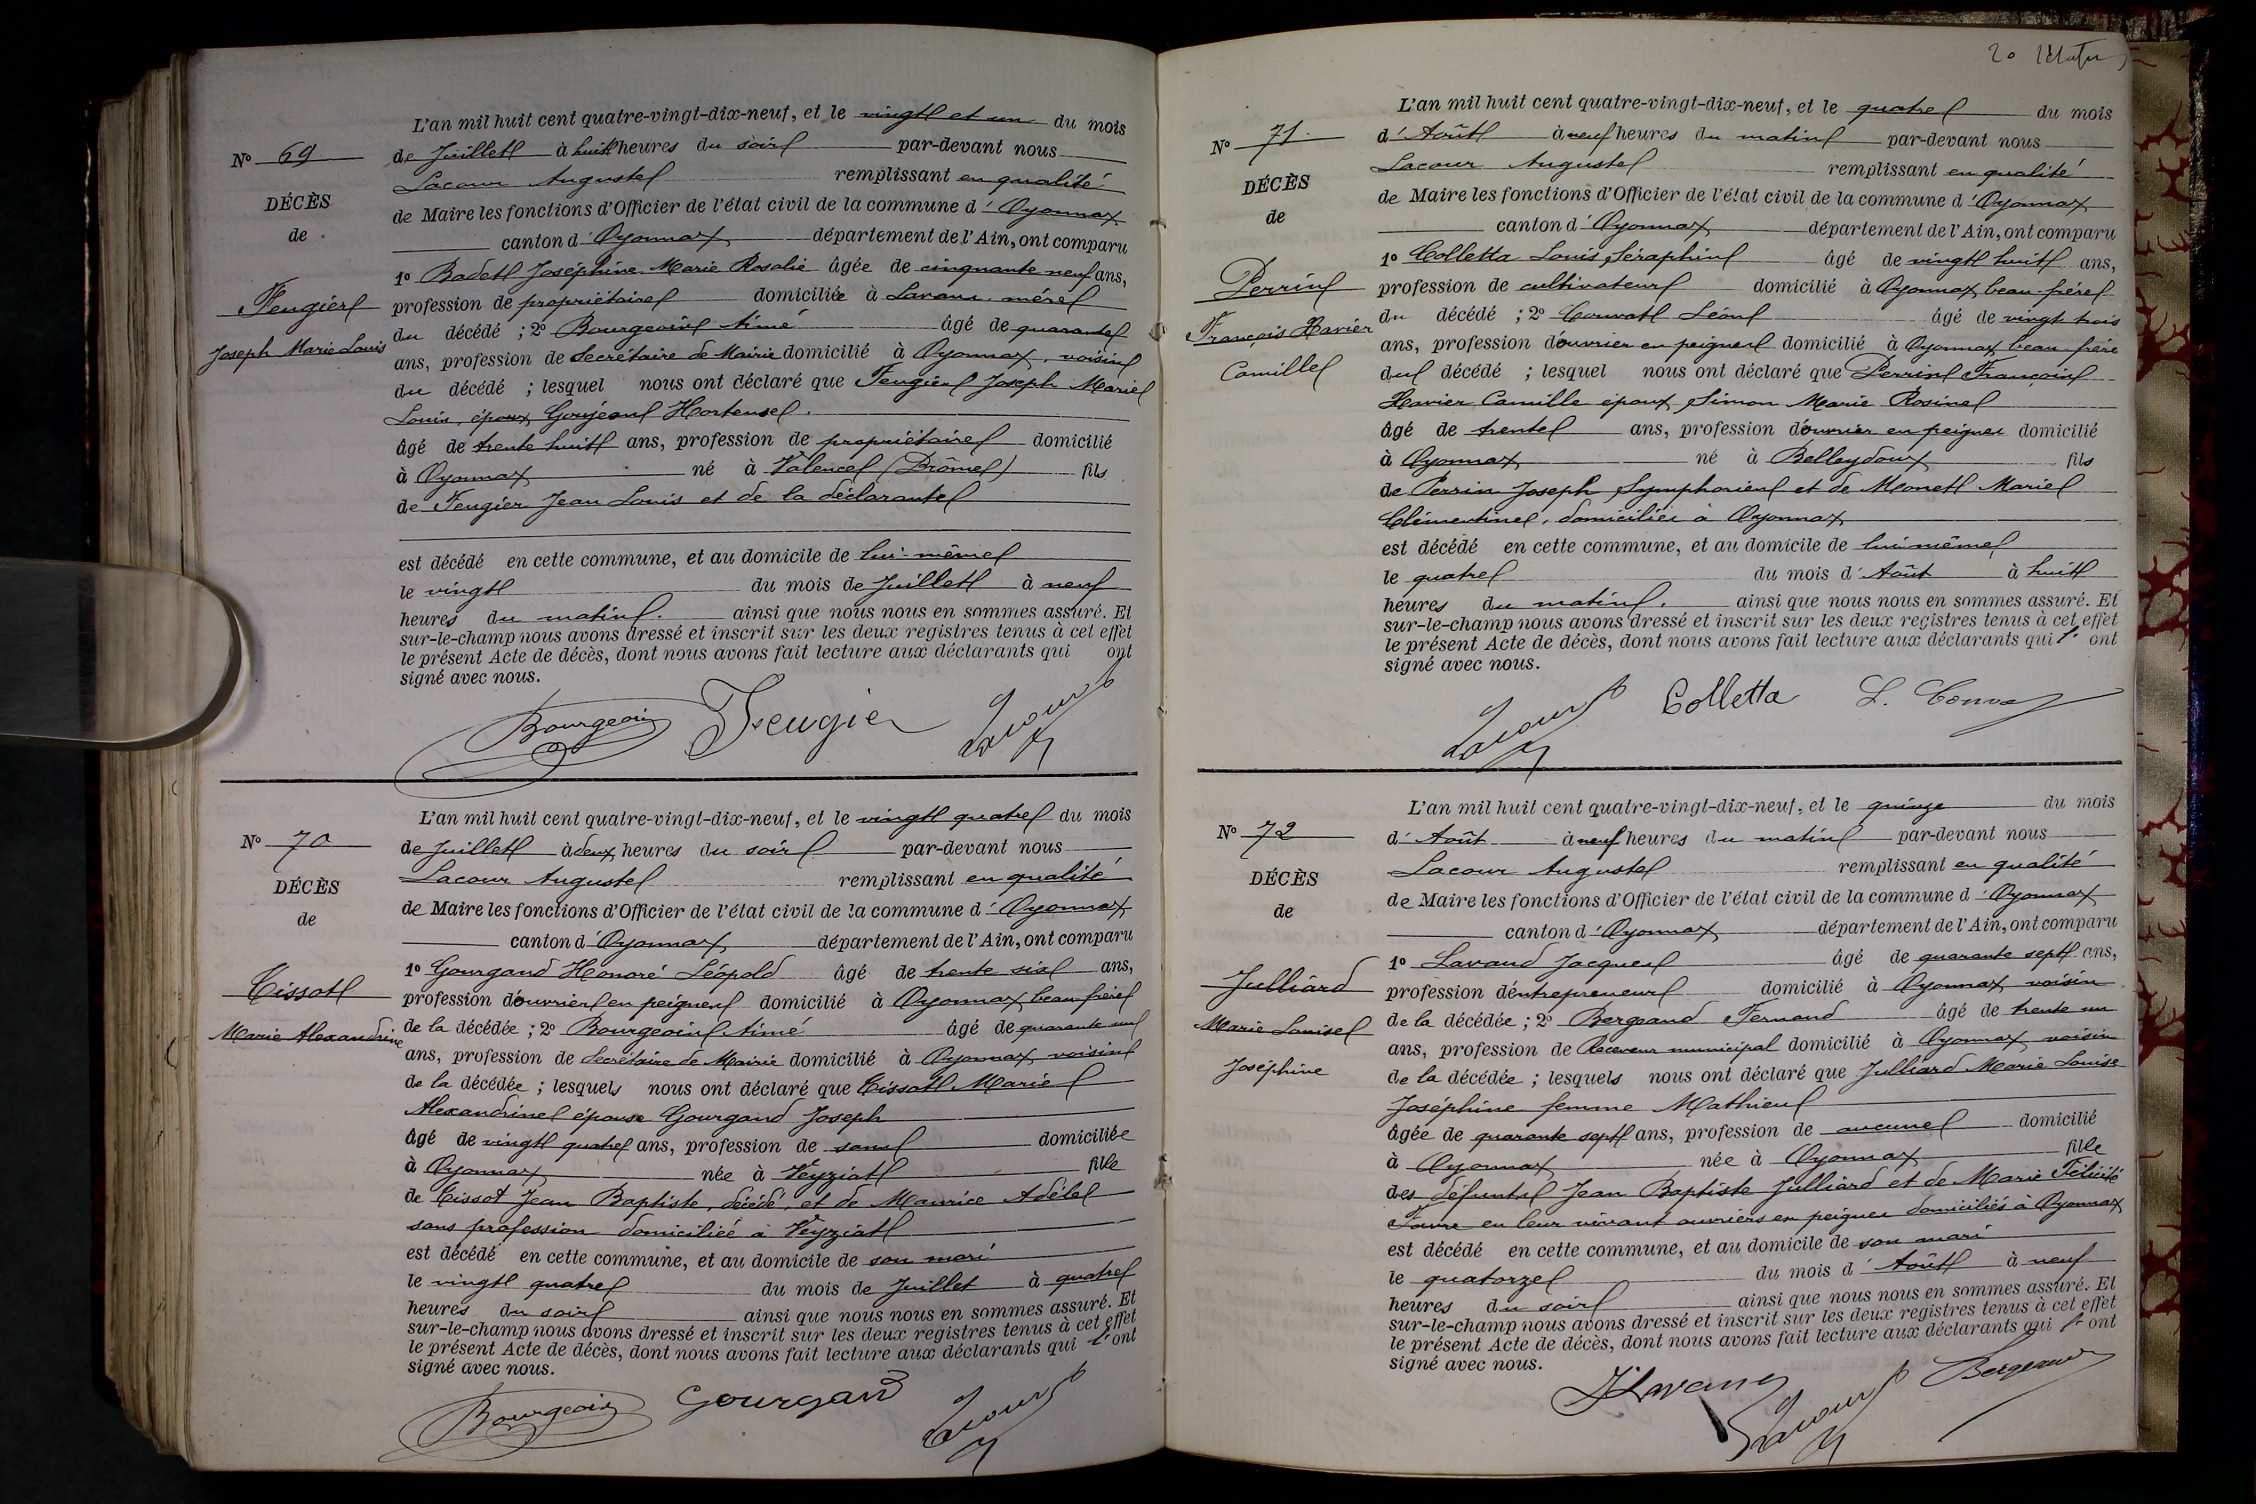 L'an mil huit cent quatre-vingt-dix-neuf, et le vingt et un du mois
No 69
de Juillet à huit heures du soir par-devant nous
Lacour Auguste remplissant en qualité
DÉCÈS
de Maire les fonctions d'Officier de l'état civil de la commune d'Oyonnax
de
canton d'Oyonnax département de l'Ain, ont comparu
1o Badet Joséphine Marie Rosalie âgée de cinquante neuf ans,
Feugier
profession de propriétaire domiciliée à Lavans mère
Joseph Marie Louis
du décédé ; 2o Bourgeois Aimé âgé de quarante
ans, profession de Secrétaire de Mairie domicilié à Oyonnax, voisin
du décédé ; lesquel nous ont déclaré que Feugier Joseph Marie
Louis, époux Goujeon Hortense.
âgé de trente huit ans, profession de propriétaire domicilié
à Oyonnax né à Valence (Drôme) fils
de Feugier Jean Louis et de la déclarante
est décédé en cette commune, et au domicile de lui-même
le vingt du mois de Juillet à neuf
heures du matin. ainsi que nous nous en sommes assuré. Et
sur-le-champ nous avons dressé et inscrit sur les deux registres tenus à cet effet
le présent Acte de décès, dont nous avons fait lecture aux déclarants qui ont
signé avec nous.
Bourgeois Feugier Lacour
L'an mil huit cent quatre-vingt-dix-neuf, et le vingt quatre du mois
No 70
de Juillet à deux heures du soir par-devant nous
Lacour Auguste remplissant en qualité
DÉCÈS
de Maire les fonctions d'Officier de l'état civil de la commune d'Oyonnax
de
canton d'Oyonnax département de l'Ain, ont comparu
1o Gourgand Honoré Léopold âgé de trente six ans,
Tissot
profession d'ouvrier en peignes domicilié à Oyonnax, beau frère
Marie Alexandrine
de la décédée ; 2o Bourgeois Aimé âgé de quarante un
ans, profession de Secrétaire de Mairie domicilié à Oyonnax, voisin
de la décédée ; lesquels nous ont déclaré que Tissot Marie
Alexandrine épouse Gourgand Joseph
âgé de vingt quatre ans, profession de sans domiciliée
à Oyonnax née à Veyziat fille
de Tissot Jean Baptiste, décédé, et de Maurice Adèle
sans profession domiciliée à Veyziat
est décédé en cette commune, et au domicile de son mari
le vingt quatre du mois de Juillet à quatre
heures du soir ainsi que nous nous en sommes assuré. Et
sur-le-champ nous avons dressé et inscrit sur les deux registres tenus à cet effet
le présent Acte de décès, dont nous avons fait lecture aux déclarants qui l'ont
signé avec nous.
Bourgeois Gourgand Lacour
20
L'an mil huit cent quatre-vingt-dix-neuf, et le quatre du mois
No 71
d'Août à neuf heures du matin par-devant nous
Lacour Auguste remplissant en qualité
DÉCÈS
de Maire les fonctions d'Officier de l'état civil de la commune d'Oyonnax
de
canton d'Oyonnax département de l'Ain, ont comparu
1o Colletta Louis Séraphin âgé de vingt huit ans,
Perrin
profession de cultivateur domicilié à Oyonnax, beau-frère
François Xavier
du décédé ; 2o Convat Léon âgé de vingt trois
ans, profession d'ouvrier en peignes domicilié à Oyonnax beau frère
Camille
du décédé ; lesquel nous ont déclaré que Perrin François
Xavier Camille époux Simon Marie Rosine
âgé de trente ans, profession d'ouvrier en peignes domicilié
à Oyonnax né à Belleydoux fils
de Perrin Joseph Symphorien et de Monet Marie
Clémentine, domiciliés à Oyonnax
est décédé en cette commune, et au domicile de lui-même
le quatre du mois d'Août à huit
heures du matin. ainsi que nous nous en sommes assuré. Et
sur-le-champ nous avons dressé et inscrit sur les deux registres tenus à cet effet
le présent Acte de décès, dont nous avons fait lecture aux déclarants qui l'ont
signé avec nous.
Lacour Colletta L. Conva
L'an mil huit cent quatre-vingt-dix-neuf, et le quinze du mois
No 72
d'Août à neuf heures du matin par-devant nous
Lacour Auguste remplissant en qualité
DÉCÈS
de Maire les fonctions d'Officier de l'état civil de la commune d'Oyonnax
de
canton d'Oyonnax département de l'Ain, ont comparu
1o Lavaud Jacques âgé de quarante sept ans,
Julliard
profession d'entrepreneur domicilié à Oyonnax voisin
Marie Louise
de la décédée ; 2o Bergeand Fernand âgé de trente un
ans, profession de Receveur municipal domicilié à Oyonnax voisin
Joséphine
de la décédée ; lesquels nous ont déclaré que Julliard Marie Louise
Joséphine femme Mathieu
âgée de quarante sept ans, profession de aucune domicilié
à Oyonnax née à Oyonnax fille
des défunts Jean Baptiste Julliard et de Marie Félicité
Favre en leur vivant ouvriers en peignes domiciliés à Oyonnax
est décédé en cette commune, et au domicile de son mari
le quatorze du mois d'Août à neuf
heures du soir ainsi que nous nous en sommes assuré. Et
sur-le-champ nous avons dressé et inscrit sur les deux registres tenus à cet effet
le présent Acte de décès, dont nous avons fait lecture aux déclarants qui l'ont
signé avec nous.
Lacour Bergeand